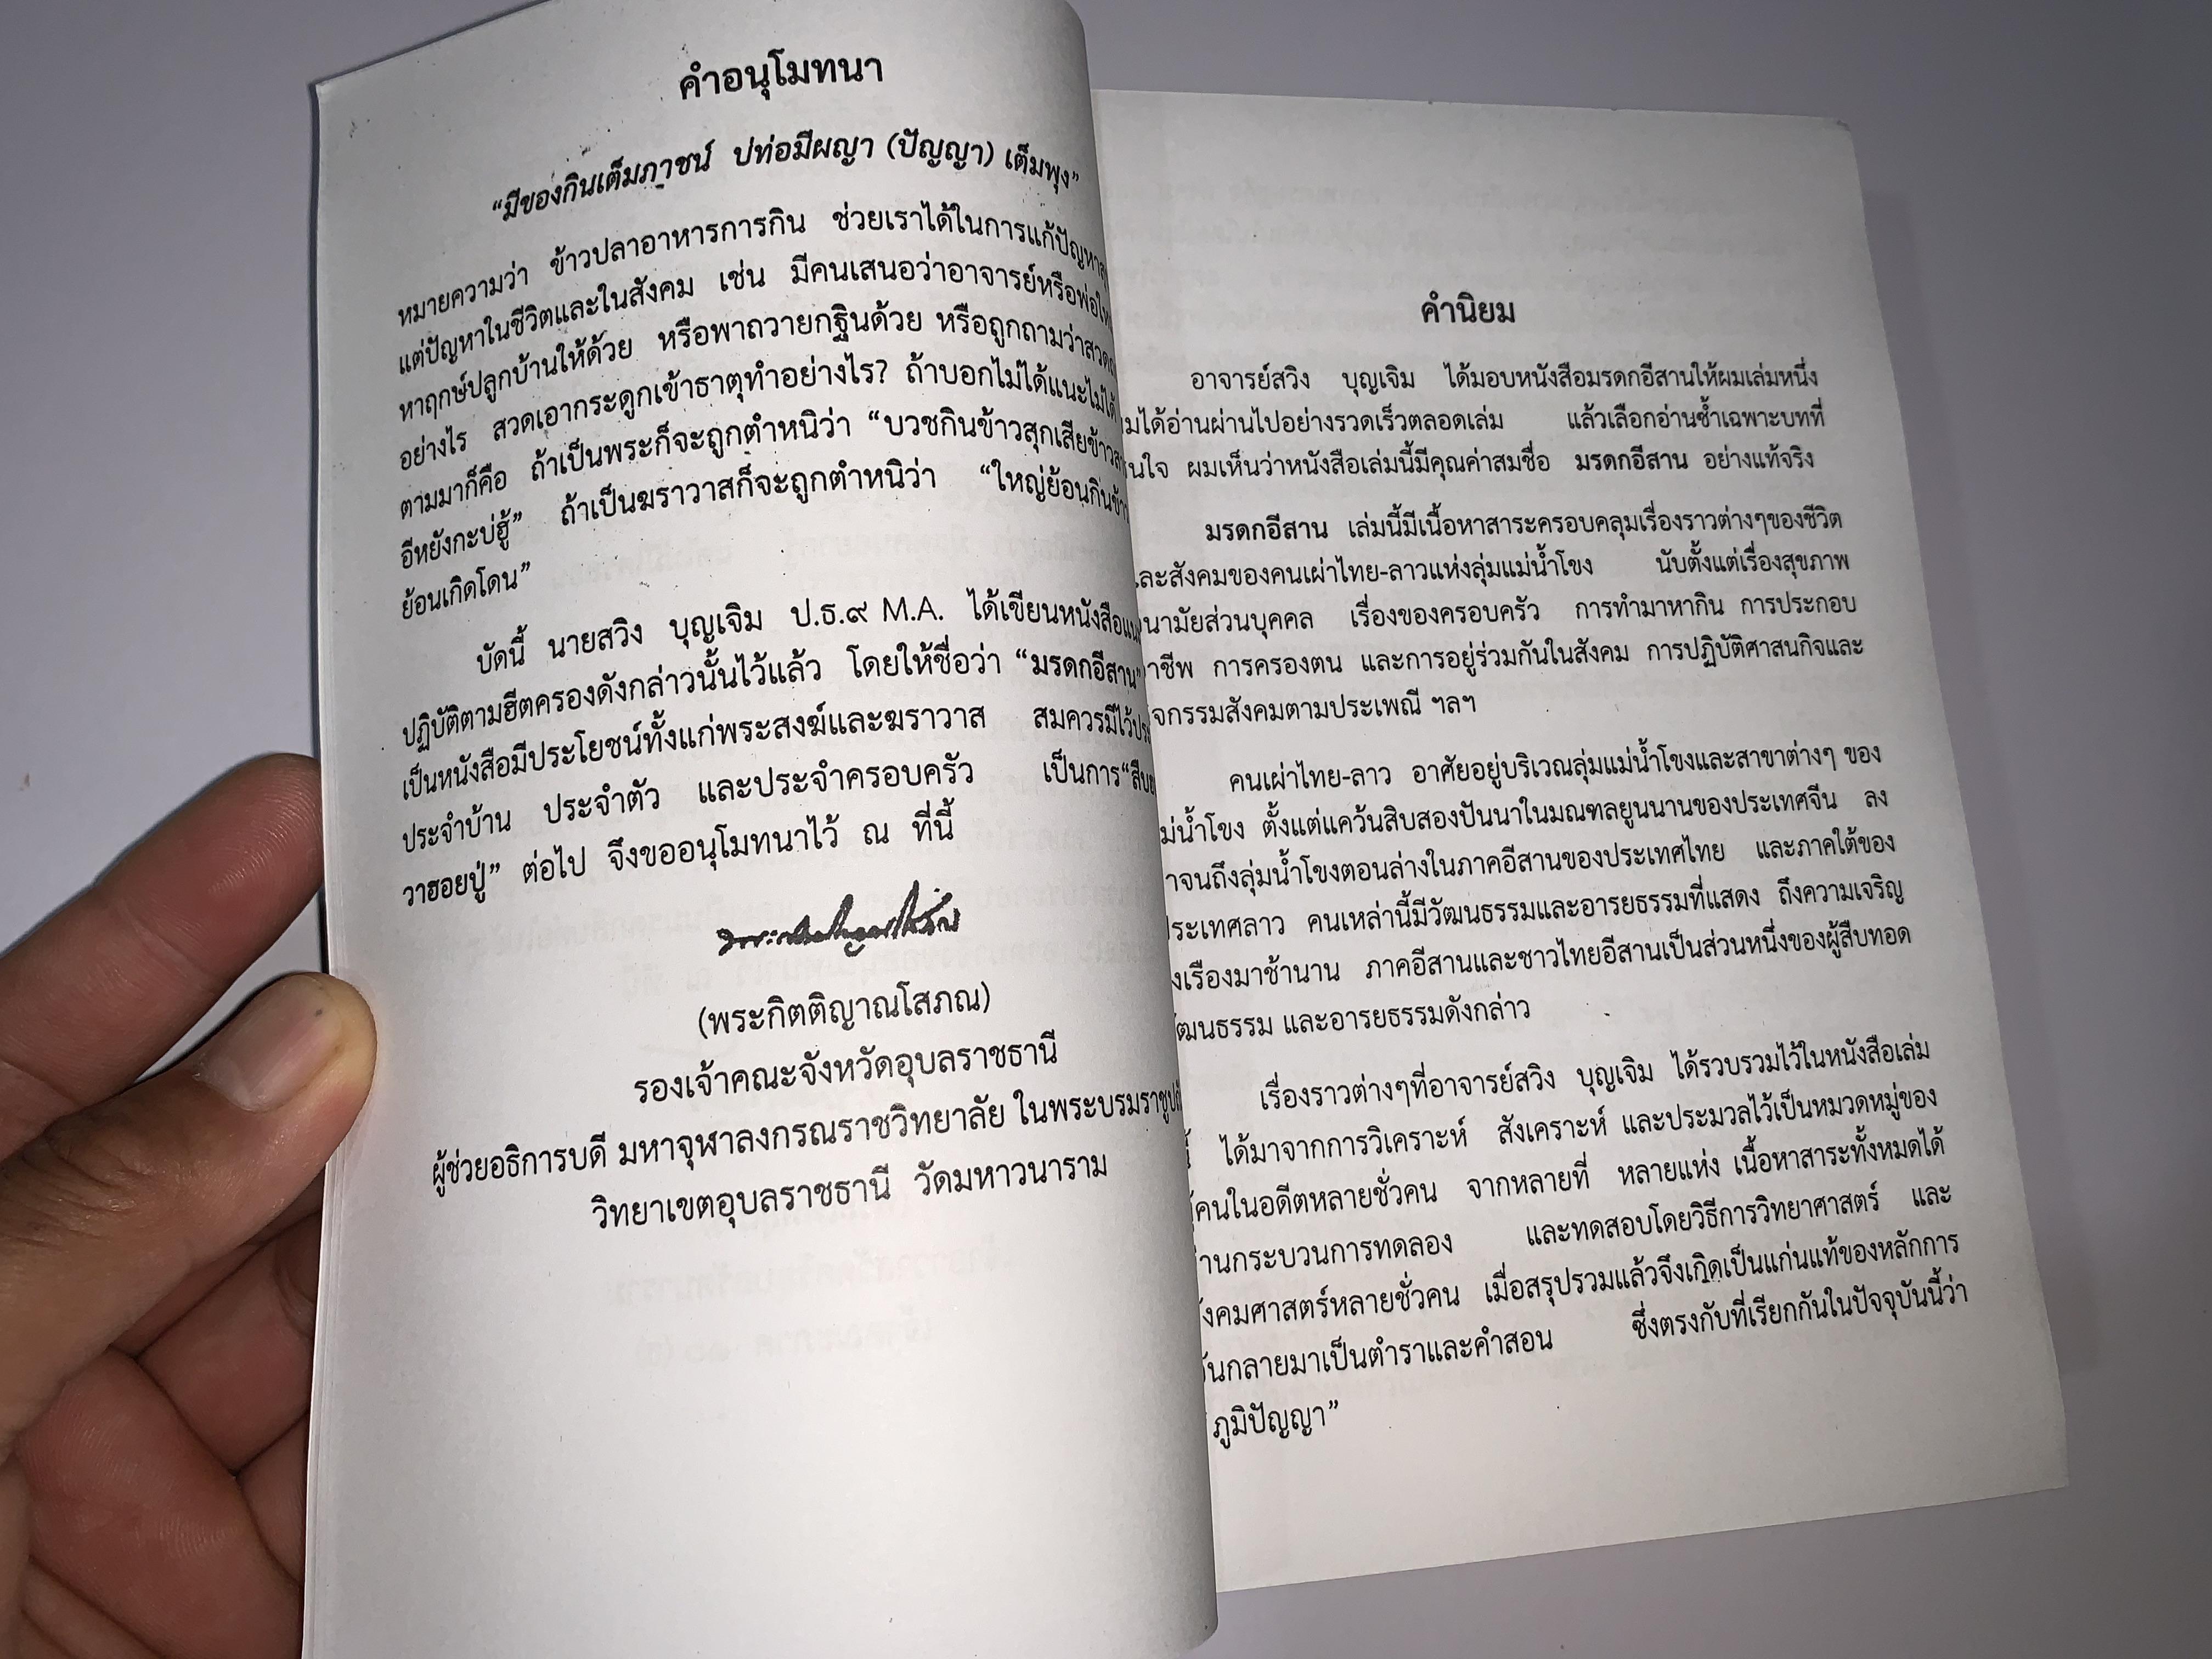 คำอนุโมทนา
“มีของกินเต็มภาชน์ บ่ท่อมีผญา (ปัญญา) เต็มพุง”
หมายความว่า ข้าวปลาอาหารการกิน ช่วยเราได้ในการแก้ปัญหา
แต่ปัญหาในชีวิตและในสังคม เช่น มีคนเสนอว่าอาจารย์หรือพ่อ
หาฤกษ์ปลูกบ้านให้ด้วย หรือพาถวายกฐินด้วย หรือถูกถามว่า
อย่างไร สวดเอากระดูกเข้าธาตุทำอย่างไร? ถ้าบอกไม่ได้แนะไม่ได้
ตามมาก็คือ ถ้าเป็นพระก็จะถูกตำหนิว่า “บวชกินข้าวสุกเสีย
อีหยังกะบ่ฮู้” ถ้าเป็นฆราวาสก็จะถูกตำหนิว่า “ใหญ่ย้อนกิน
ย้อนเกิดโดน”
บัดนี้ นายสวิง บุญเจิม ป.ธ.๙ M.A. ได้เขียนหนังสือ
ปฏิบัติตามฮีตครองดังกล่าวนั้นไว้แล้ว โดยให้ชื่อว่า “มรดกอีสาน”
เป็นหนังสือมีประโยชน์ทั้งแก่พระสงฆ์และฆราวาส สมควรมีไว้
ประจำบ้าน ประจำตัว และประจำครอบครัว เป็นการ
วาฮอยปู่” ต่อไป จึงขออนุโมทนาไว้ ณ ที่นี้
(พระกิตติญาณโสภณ)
รองเจ้าคณะจังหวัดอุบลราชธานี
ผู้ช่วยอธิการบดี มหาจุฬาลงกรณราชวิทยาลัย ในพระบรม
วิทยาเขตอุบลราชธานี วัดมหาวนาราม
คำนิยม
อาจารย์สวิง บุญเจิม ได้มอบหนังสือมรดกอีสานให้ผมเล่มหนึ่ง
มได้อ่านผ่านไปอย่างรวดเร็วตลอดเล่ม แล้วเลือกอ่านซ้ำเฉพาะบทที่
นใจ ผมเห็นว่าหนังสือเล่มนี้มีคุณค่าสมชื่อ มรดกอีสาน อย่างแท้จริง
มรดกอีสาน เล่มนี้มีเนื้อหาสาระครอบคลุมเรื่องราวต่างๆของชีวิต
และสังคมของคนเผ่าไทย-ลาวแห่งลุ่มแม่น้ำโขง นับตั้งแต่เรื่องสุขภาพ
นามัยส่วนบุคคล เรื่องของครอบครัว การทำมาหากิน การประกอบ
าชีพ การครองตน และการอยู่ร่วมกันในสังคม การปฏิบัติศาสนกิจและ
จกรรมสังคมตามประเพณี ฯลฯ
คนเผ่าไทย-ลาว อาศัยอยู่บริเวณลุ่มแม่น้ำโขงและสาขาต่างๆ ของ
ม่น้ำโขง ตั้งแต่แคว้นสิบสองปันนาในมณฑลยูนนานของประเทศจีน ลง
าจนถึงลุ่มน้ำโขงตอนล่างในภาคอีสานของประเทศไทย และภาคใต้ของ
ประเทศลาว คนเหล่านี้มีวัฒนธรรมและอารยธรรมที่แสดง ถึงความเจริญ
งเรืองมาช้านาน ภาคอีสานและชาวไทยอีสานเป็นส่วนหนึ่งของผู้สืบทอด
วัฒนธรรม และอารยธรรมดังกล่าว
เรื่องราวต่างๆที่อาจารย์สวิง บุญเจิม ได้รวบรวมไว้ในหนังสือเล่ม
นี้ ได้มาจากการวิเคราะห์ สังเคราะห์ และประมวลไว้เป็นหมวดหมู่ของ
คนในอดีตหลายชั่วคน จากหลายที่ หลายแห่ง เนื้อหาสาระทั้งหมดได้
านกระบวนการทดลอง และทดสอบโดยวิธีการวิทยาศาสตร์ และ
ังคมศาสตร์หลายชั่วคน เมื่อสรุปรวมแล้วจึงเกิดเป็นแก่นแท้ของหลักการ
ันกลายมาเป็นตำราและคำสอน ซึ่งตรงกับที่เรียกกันในปัจจุบันนี้ว่า
ภูมิปัญญา”